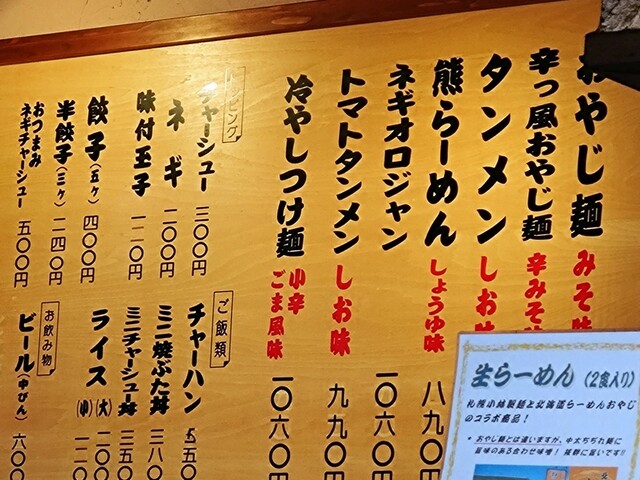 おやじ麺 みそ味
辛っ風おやじ麺 辛みそ味
タンメン しお味
熊らーめん しょうゆ味 八九〇円
ネギオロジャン 一〇六〇円
トマトタンメン しお味 九九〇円
冷やしつけ麺 小辛 ごま風味 一〇六〇円
トッピング
チャーシュー 三〇〇円
ネギ 二〇〇円
味付玉子 一二〇円
餃子(五ヶ) 四〇〇円
半餃子(三ヶ) 二四〇円
おつまみ
ネギチャーシュー 五〇〇円
ご飯類
チャーハン
ミニ焼ぶた丼 三八〇
ミニチャーシュー丼 三五〇
ライス(大)
(小)
お飲み物
ビール(中びん) 六〇〇
生らーめん(2食入り)
札幌小林製麺と北海道らーめんおやじ
のコラボ商品!
・おやじ麺とは違いますが、中太ちぢれ麺に
旨味のある合わせ味噌! 抜群に旨いです!!